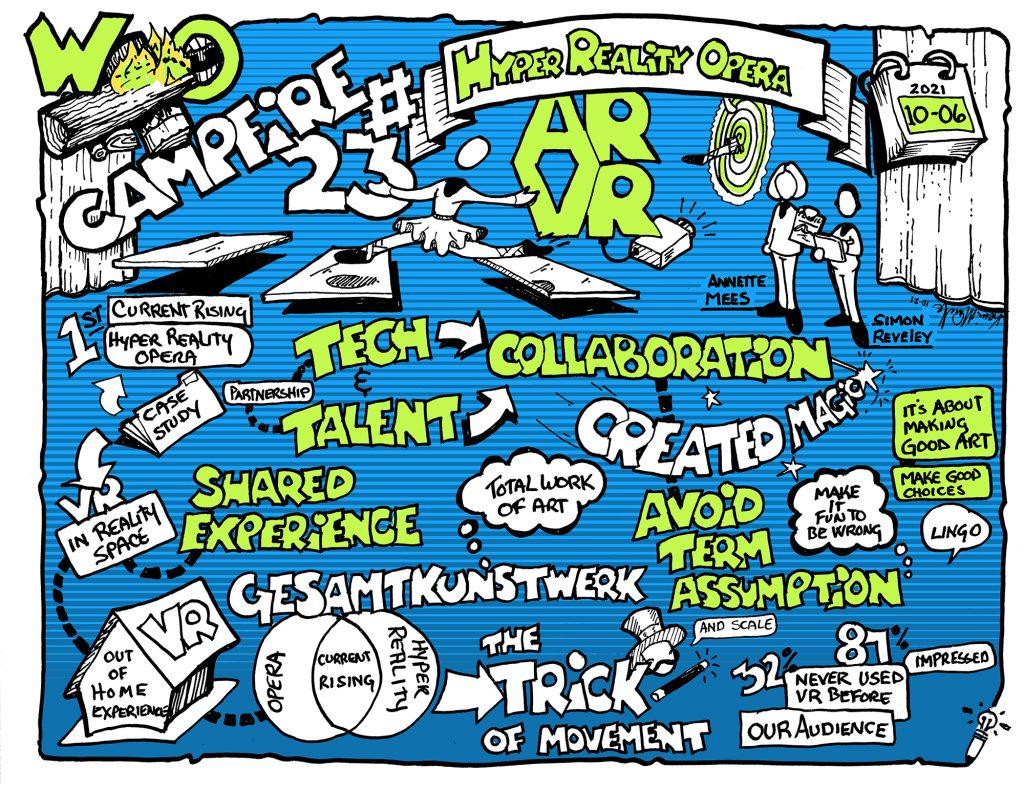 WOO
CAMPFIRE
#
23
HYPER REALITY OPERA
AR
VR
2021
10-06
ANNETTE
MEES
SIMON
REVELEY
10-21
1ST
CURRENT RISING
HYPER REALITY
OPERA
CASE
STUDY
PARTNERSHIP
TECH
&
TALENT
COLLABORATION
CREATED MAGIC
IT'S ABOUT
MAKING
GOOD ART
MAKE GOOD
CHOICES
LINGO
VR
IN REALITY
SPACE
SHARED
EXPERIENCE
TOTAL WORK
OF ART
AVOID
TERM
ASSUMPTION
MAKE
IT
FUN TO
BE WRONG
GESAMTKUNSTWERK
VR
OUT
OF
HOME
EXPERIENCE
OPERA
CURRENT
RISING
HYPER
REALITY
THE
TRICK
OF MOVEMENT
AND SCALE
32%
NEVER USED
VR BEFORE
87%
IMPRESSED
OUR AUDIENCE